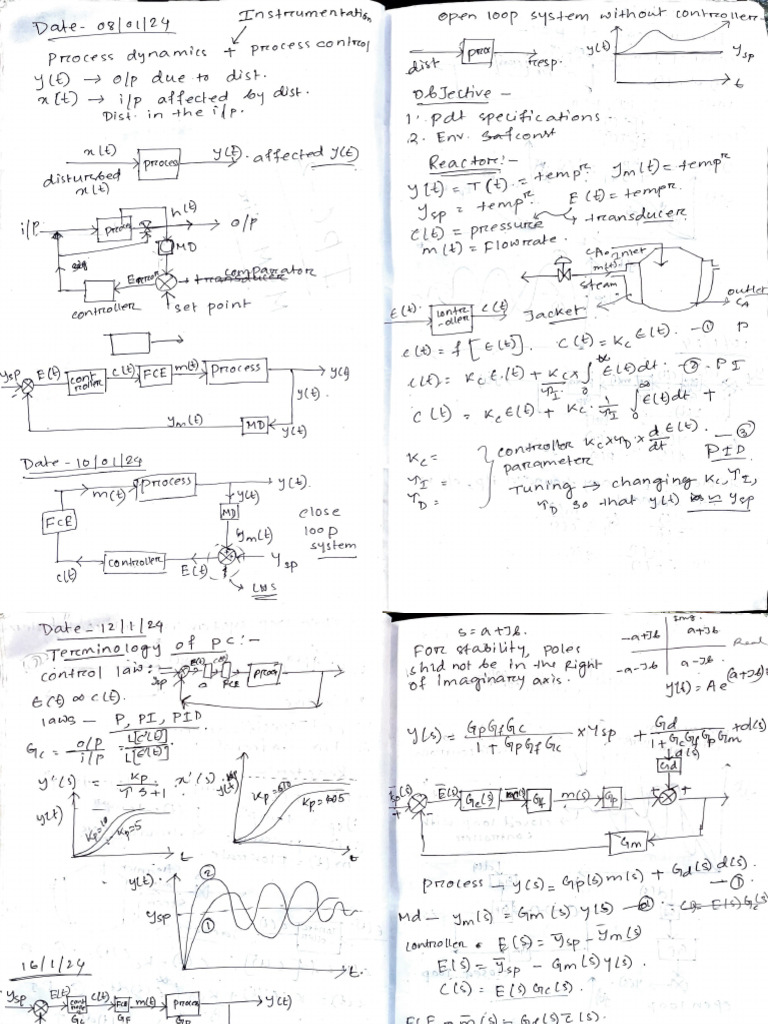 Date - 08/01/24
Instrumentation
Process dynamics + process control
y(t) → o/p due to dist.
x(t) → i/p affected by dist.
Dist. in the i/p.
x(t)
process
y(t). affected y(t)
disturbed
x(t)
h(t)
i/p
process
o/p
MD
Error
comparator
transducer
controller
set point
ysp
E(t)
controller
c(t)
FCE
m(t)
process
y(t)
y(t).
ym(t)
MD
y(t)
Date - 10/01/24
m(t)
process
y(t).
y(t)
FCE
MD
close
loop
system
ym(t)
c(t)
controller
E(t)
ysp
open loop system without controller
dist
resp.
y(t)
ysp
t
Objective -
1. Pdt specifications.
2. Env.
Reactor:-
y(t) = T(t). = tempr. ym(t) = tempr
ysp = tempr. E(t) = tempr.
c(t) = pressure
transducer.
m(t) = Flowrate.
inlet
m(t)
steam
outlet
CA
E(t).
controller
c(t)
Jacket
c(t) = f [E(t)]. c(t) = Kc E(t). - ① P
c(t) = Kc E(t) + Kc x 1/τI ∫ E(t)dt. - ② PI
c(t) = Kc E(t) + Kc. 1/τI ∫0∞ E(t)dt +
Kc x τD x d/dt E(t). - ③
PID
Kc =
τI =
τD =
controller
parameter
Tuning → changing Kc, τI,
τD so that y(t) ≈ ysp
Date - 12/1/24
Terminology of PC:-
control law:-
ysp
FCE
process
E(t) ∝ c(t).
laws - P, PI, PID
Gc = o/p / i/p = L[c(t)] / L[E(t)]
y'(s) = Kp / τs+1 . x'(s)
y(t)
Kp=10
Kp=5
t
y(t)
t
y(t).
②
ysp
①
t.
16/1/24
ysp
E(t)
c(t)
FCE
m(t)
process
y(t)
Gc
GF
GP
s = a+Jb.
For stability, poles
shld not be in the right
of imaginary axis.
-a+Jb
a+Jb
Real
-a-Jb
a-Jb
y(s) = Ae(a+Jb)
y(s) = GpGfGc / 1+GpGfGc x ysp + Gd / 1+GcGfGpGm + d(s)
d(s)
Gd
E(s)
Gc(s)
Gf
m(s)
Gp
Gm
process - y(s) = Gp(s) m(s) + Gd(s) d(s)
- ①
Md - ym(s) = Gm(s) y(s) - ②
controller. E(s) = ysp - ym(s)
E(s) = ysp - Gm(s) y(s).
C(s) = E(s) Gc(s).
FCE = m(s) = Gf(s) c(s).